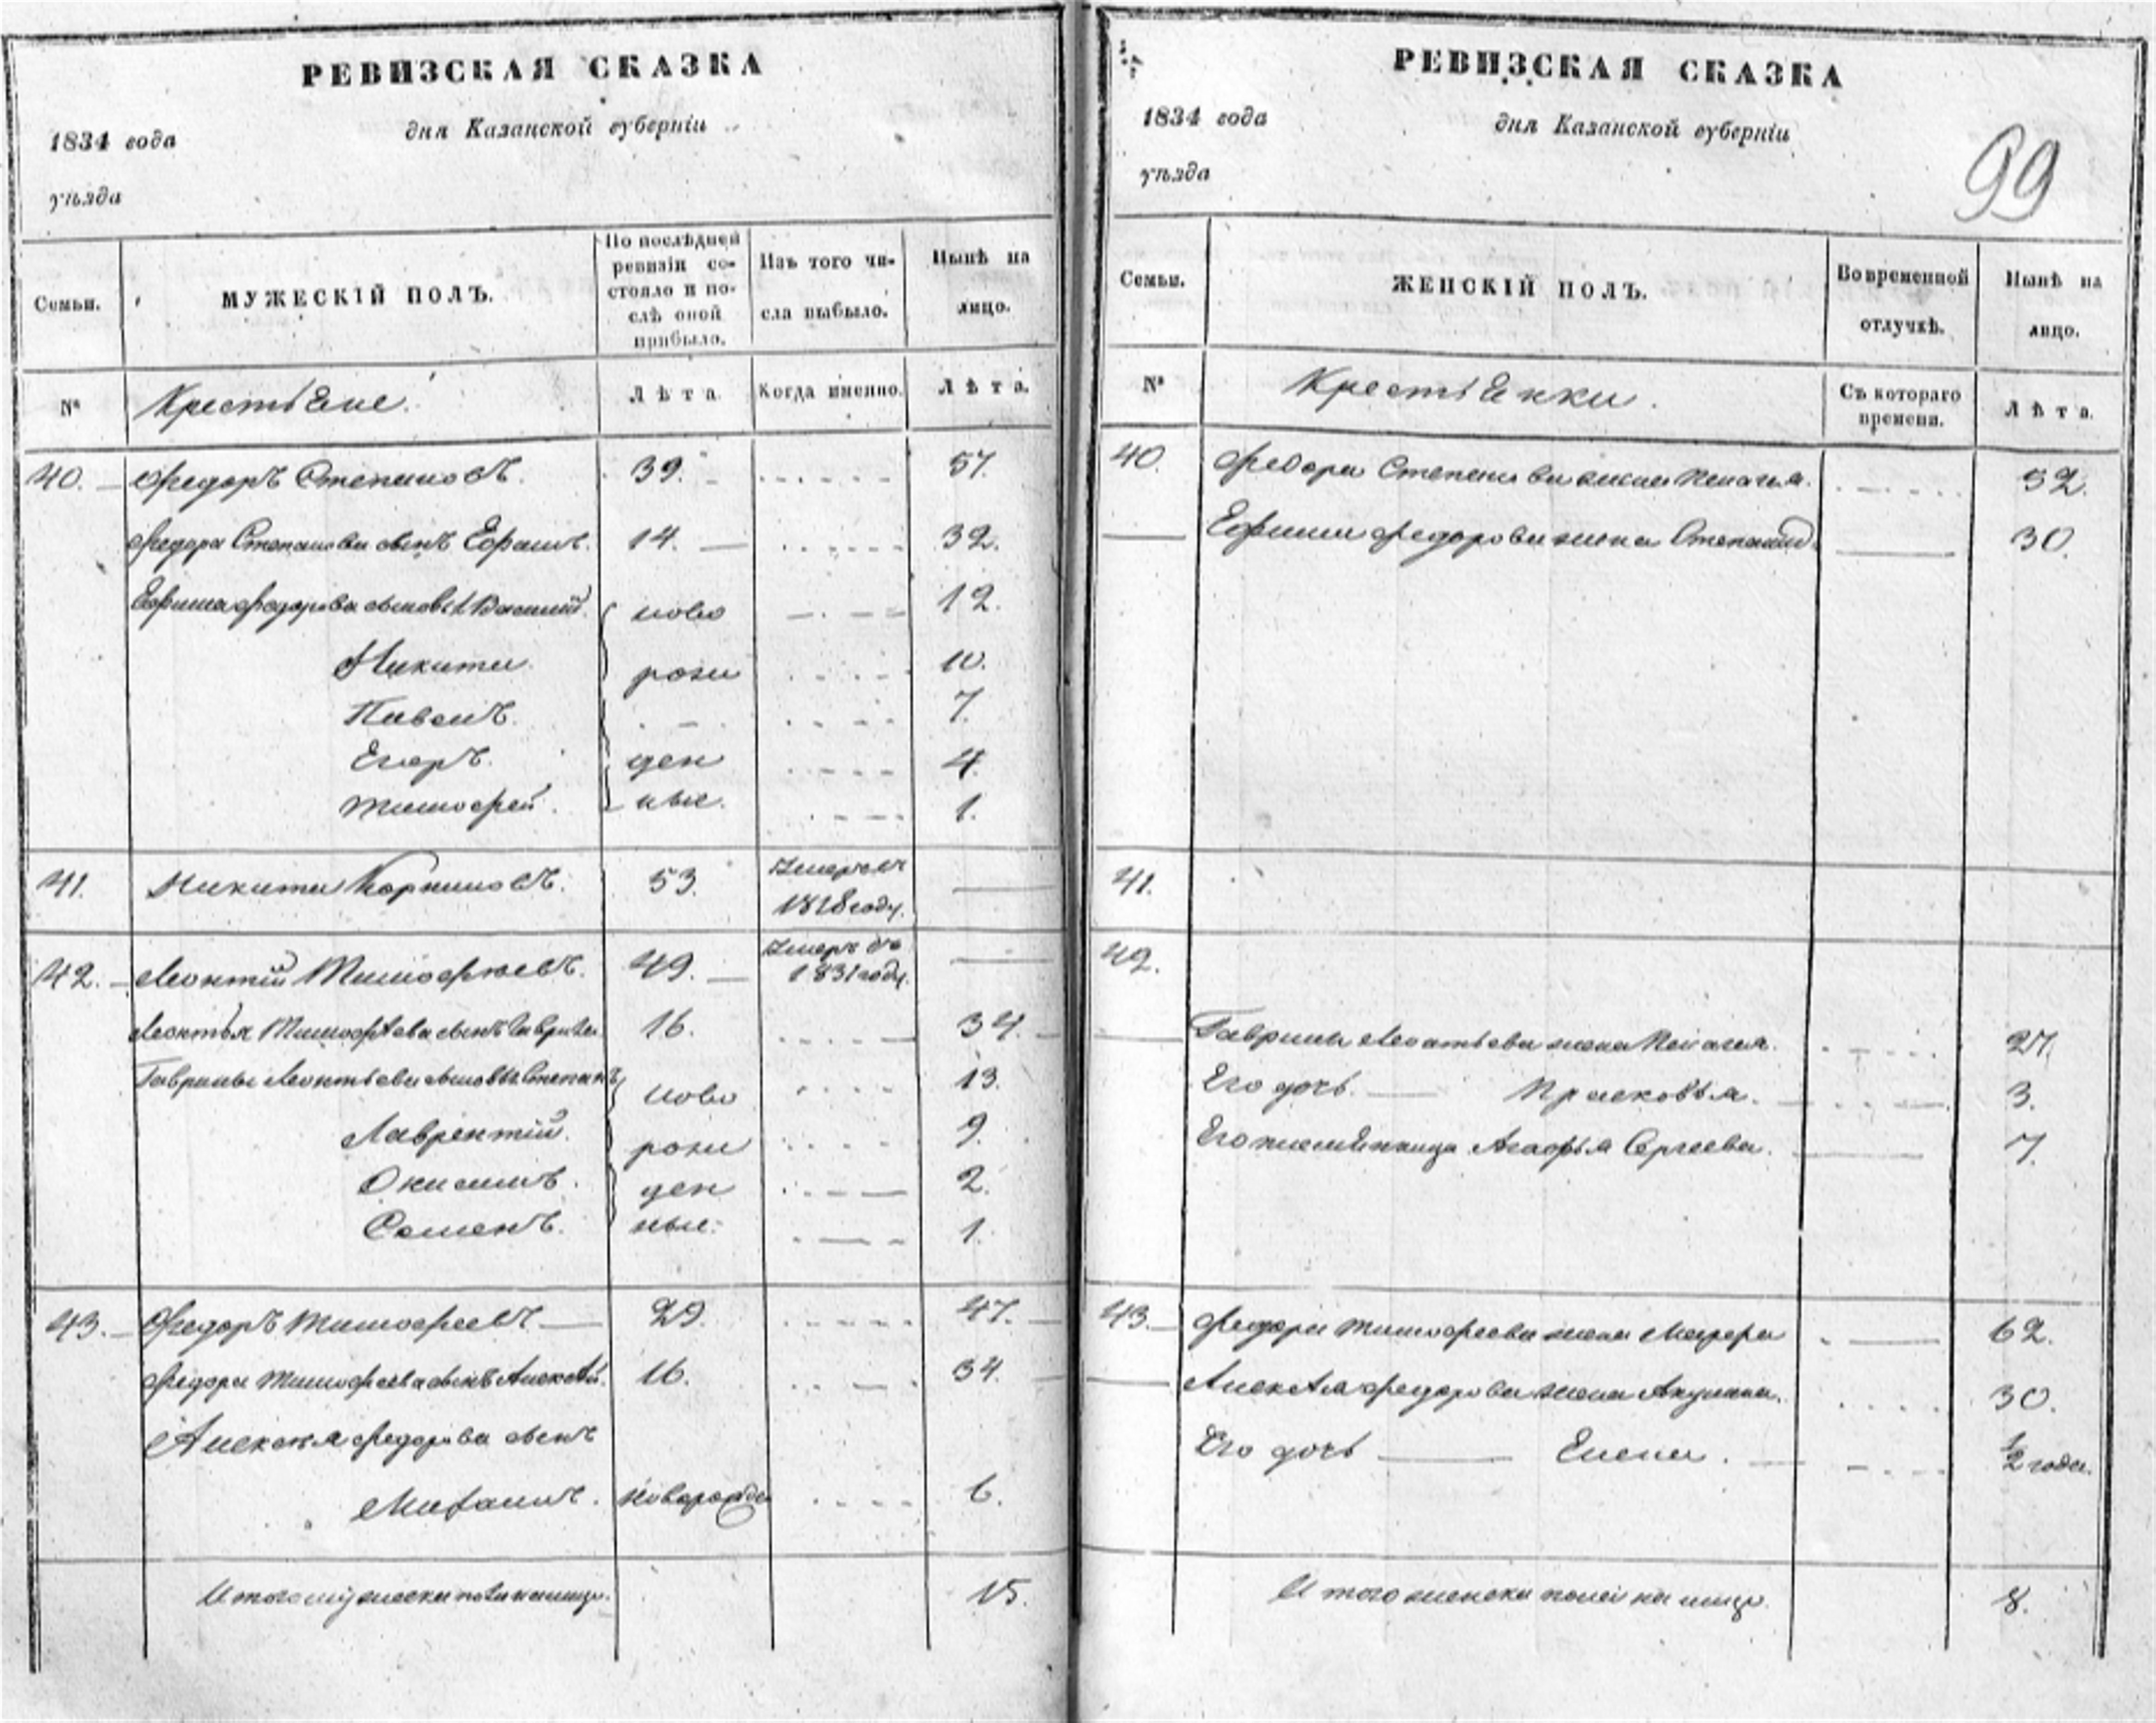 РЕВИЗСКАЯ СКАЗКА
1834 года
дня Казанской губерніи
уѣзда
Семьи.
МУЖЕСКІЙ ПОЛЪ.
По послѣдней
ревизіи со-
стояло и по-
слѣ оной
прибыло.
Изъ того чи-
сла выбыло.
Нынѣ на
лицо.
№
Крестьяне.
Лѣта.
Когда именно.
Лѣта.
40. Федоръ Степановъ. 39. 57.
Федора Степанова сынъ Ефимъ. 14. 32.
Ефима Федорова сыновья Василий. ново 12.
Никита рож 10.
Павелъ. 7.
Егоръ. ден 4.
Тимофей. ные. 1.
41. Никита 53. Умеръ въ
1828 году.
42. Леонтій Тимофеевъ. 49. Умеръ въ
1831 году.
Леонтья Тимофѣева сынъ Гаврила 16. 34.
Гаврилы Леонтьева сыновья Степанъ ново 13.
Лаврентій. рож 9.
ден 2.
Семенъ. ные. 1.
43. Федоръ Тимофеевъ 29. 47.
Федора Тимофеева сынъ Алексѣй. 16. 34.
Алексея Федорова сынъ
новорожде 6.
Итого мужеска пола на лицо. 15.
РЕВИЗСКАЯ СКАЗКА
1834 года
дня Казанской губерніи
уѣзда
99
Семьи.
ЖЕНСКІЙ ПОЛЪ.
Во временной
отлучкѣ.
Нынѣ на
лицо.
№
Крестьянки.
Съ котораго
времени.
Лѣта.
40. Федора Степанова жена Пелагея. 52.
Ефима Федорова жена Степанида 30.
41.
42.
Гаврилы Леонтьева жена Пелагея. 27.
Его дочь Прасковья. 3.
Его племянница Агафья Сергеева. 7.
43. Федора Тимофеева жена 62.
Алексѣя Федорова жена Акулина. 30.
Его дочь Елена. 1/2 года.
Итого женска пола на лицо. 8.